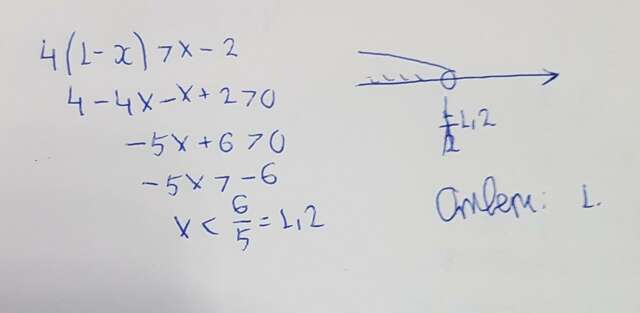 4(1-x)>x-2
4-4x-x+2>0
-5x+6>0
-5x>-6
x<6/5=1,2
1,2
Ответ: 1.